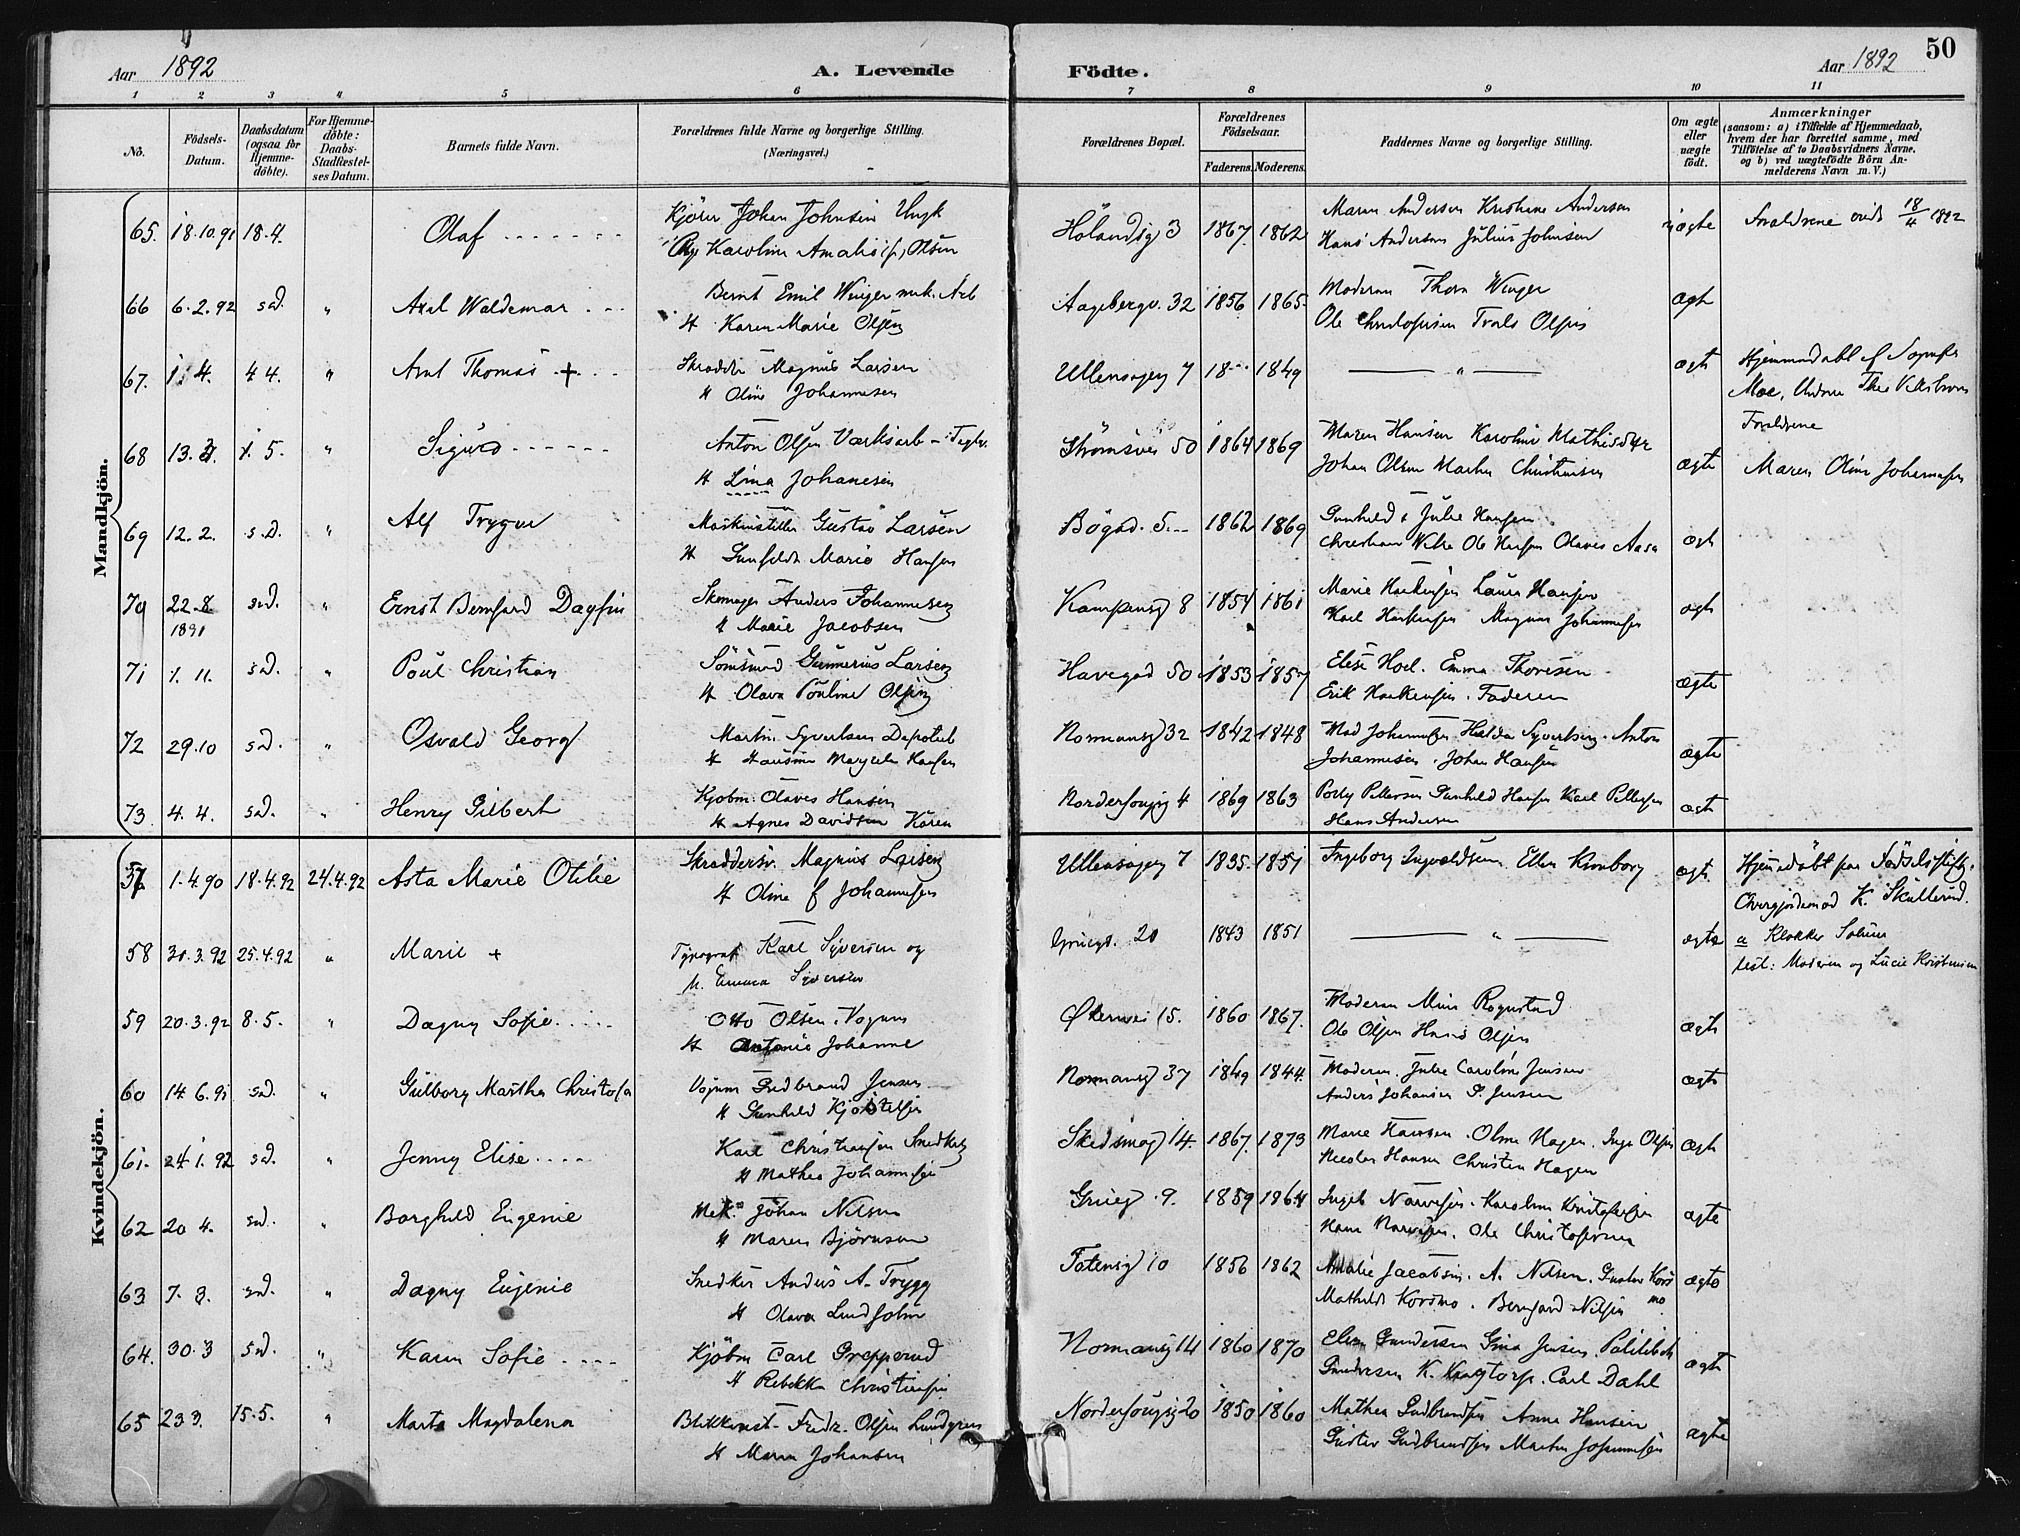 Aar 1892
A. Levende
Födte.
Aar 1892
50
1 2 3 4 5 6 7 8 9 10 11
No.
Födsels-
Datum.
Daabsdatum
(ogsaa for
Hjemme-
döbte).
For Hjemme-
döbte:
Daabs-
Stadfæstel-
ses Datum.
Barnets fulde Navn.
Forældrenes fulde Navne og borgerlige Stilling.
(Næringsvei.)
Forældrenes Bopæl.
Forældrenes
Födselsaar.
Faderens. Moderens.
Faddernes Navne og borgerlige Stilling.
Om ægte
eller
uægte
födt.
Anmærkninger
(saasom: a) i Tilfælde af Hjemmedaab,
hvem der har forrettet samme, med
Tilföielse af to Daabsvidners Navne,
og b) ved uægtefödte Börn An-
melderens Navn m. V.)
Mandkjön.
65. 18.10.91 18.4. Olaf
Johan Johnsen
Karoline Amalie Olsen
Hölandsg 3 1867. 1862
Maren Andersen Kristiane Andersen
Hans Andersen Julius Johnsen
uægte 18/4 1892
66 6.2.92 s.d. " Axel Waldemar
Bernt Emil Winger mek. Arb
H Karen Marie Olsen
Aagebergv. 32 1856 1865
Moderen Thora Winger
Ole Christofersen Olsen
ægte
67. 1.4. 4 4. " Axel Thomas +
Skrædder Magnus Larsen
H Oline Johannesen
Ullensagerg 7 18 1849 — " —
ægte Hjemmedøbt af
Moe,
Forældrene
68 13.3. 1.5. " Sigurd
Anton Olsen
H Lina Johanesen
Strömsvei 50 1864 1869
Maren Hansen Karoline
Johan Olsen Martin Christiansen
ægte Maren Oline Johannesen
69 12.2. s.d. " Alf Trygve
Gustav Larsen
H Gunhilde Marie Hansen
Bögad. 5. 1862 1869
Gunhild & Julie Hansen
Ole Hansen Olaves Aasa
ægte
70 22.8 1891 s.d. " Ernst Bernhard Dagfin
Skomager Anders Johannesen
H Marie Jacobsen
Kampensg 8 1854 1861
Marie Haakensen Laura Hansen
Karl Haakensen Magnus Johannesen
ægte
71 1.11. s.d. " Poul Christian
Gunnerius Larsen
H Olava Pouline Olsen
Havegad 50 1853 1857
Elise Hoel. Emma Thoresen
Erik Haakensen. Faderen
ægte
72 29.10 s.d. " Osvald Georg
Martin Syvertsen
H Hansine Hansen
Normansg 32 1842 1848
Hilda Syvertsen. Anton
Johannesen. Johan Hansen
ægte
73. 4.4. s.d. " Henry Gilbert
Kjøbm: Olaves Hansen
H Agnes Davidsen Karen
Norderhougsg 4 1869 1863
Polly Pettersen Gunhild Hansen Karl Pettersen
Hans Andersen
ægte
Kvindekjön.
57 1.4.90 18.4.92 24.4.92 Asta Marie Otilie
Skræddersv. Magnus Larsen
H Oline f Johannesen
Ullensagerg 7 1835. 1851
Ingeborg Ingvaldsen Ellen Kronborg
ægte. Hjemmedøbt paa Fødselsstift.
K. Skullerud.
58 30.3.92 25.4.92 " Marie +
Typograf Karl Syversen og
H. Emma Syversen
Gruegd. 20 1843 1851 — " —
ægte a Klokker Solum
test: Moderen og Lucie Kristensen
59 20.3.92 8.5. " Dagny Sofie
Otto Olsen. Vognm
H Antonie Johanne
Økernvei 15. 1860 1867.
Moderen Mina Rognstad
Ole Olsen Hans Olsen
ægte
60 14.6.91 s.d. " Gulborg Martha Christofa
Vognm Gudbrand Jensen
H Gunhild Kjøstelsen
Normansg 37 1849 1844.
Moderen. Julie Caroline Jensen
Anders Johansen P. Jensen
ægte
61. 24.1.92 s.d. " Jenny Elise
Karl Christiansen Snedker
H Mathea Johannesen
Skedsmog 14. 1867. 1873
Marie Hansen. Olma Hagen. Inga Olsen
Nicolai Hansen Christen Hagen
ægte
62 20 4. s.d. " Borghild Eugenie
Mek. Johan Nilsen
H Maren Bjørnsen
Grueg. 9. 1859 1864
Karoline Kristofersen
Ole Christofersen
ægte
63 7.3. s.d. " Dagny Eugenie
Snedker Anders A. Trygg
H Olava Lundholm
Totensg 10 1856 1862
Amalie Jacobsen. A. Nilsen. Gustav Kors
mo
Mathilde Korsmo. Bernhard Nilsen
ægte
64. 30.3 s.d. " Karen Sofie
Kjöbm Carl Grepperud
H Rebekka Christiansen
Normansg 14 1860 1870
Elen Gundersen Gina Jensen.
Gundersen K. Kragtorp. Carl Dahl
ægte
65 23.3. 15.5. " Marta Magdalena
Blikkensl. Fredr. Olsen Lundgren
H Maren Johansen
Norderhougsg 20 1850 1860
Mathea Gudbrandsen Anna Hansen
Gustav Gudbrandsen Martin Johannesen
ægte